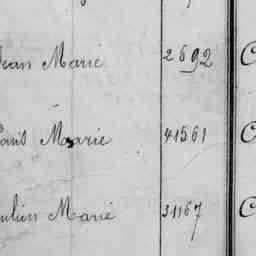 Jean Marie 2692 C
Louis Marie 41561 C
Marie 31167 C